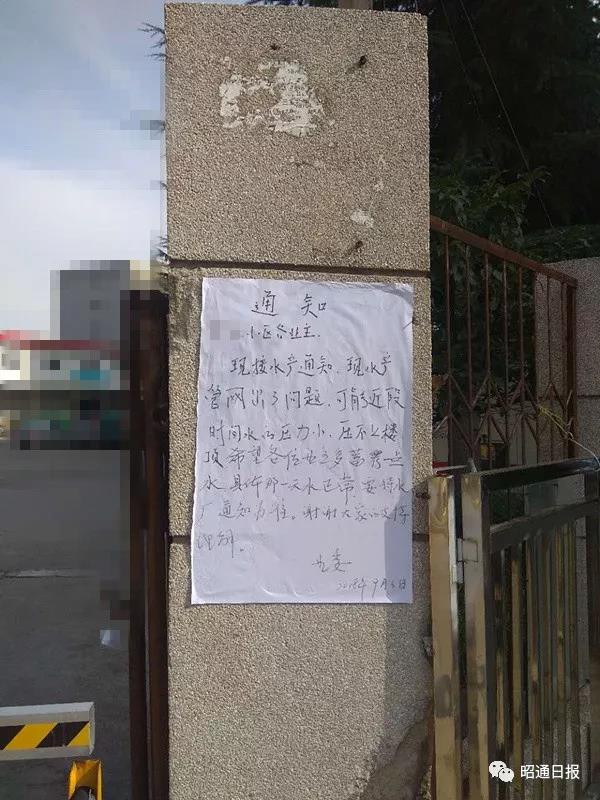 通知
小区各业主.
现接水产通知.现水产
管网出了问题.可能近段
时间水的压力小.压不上楼
顶希望各位业主多蓄備一点
水.具体那一天水正常要待水
厂通知为准。谢谢大家的支持
理解。
业委
2018年9月6日
昭通日报